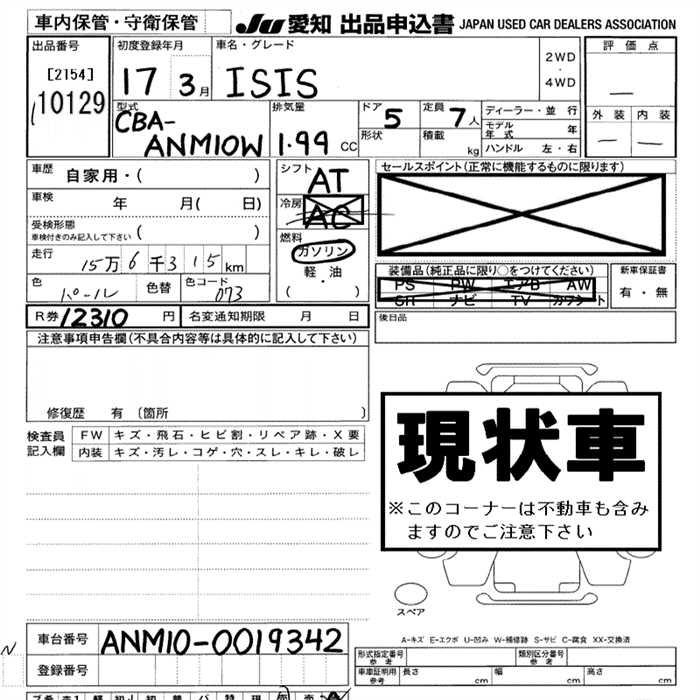 車内保管・守衛保管 JU 愛知 出品申込書 JAPAN USED CAR DEALERS ASSOCIATION
出品番号
[2154]
10129
初度登録年月
17 3月
車名・グレード
ISIS
2WD
・
4WD
評価点
外装 内装
型式
CBA-
ANM10W
排気量
1.99 CC
ドア 5
形状
定員 7人
積載 kg
ディーラー・並行
モデル年式 年
ハンドル 左・右
車歴 自家用・( )
車検 年 月( 日)
受検形態
車検付きのみ記入して下さい ( )
走行 15万6千315km
色 パール 色替 色コード 073
シフト AT
冷房 AC
燃料
ガソリン
軽・油
( ・ )
セールスポイント(正常に機能するものに限ります)
装備品(純正品に限り○をつけてください)
PS PW エアB AW
SR ナビ TV カワシート
新車保証書
有・無
後日品
R券 12310円 名変通知期限 月 日
注意事項申告欄(不具合内容等は具体的に記入して下さい)
修復歴 有〔箇所 〕
検査員
記入欄
FW キズ・飛石・ヒビ割・リペア跡・X要
内装 キズ・汚レ・コゲ・穴・スレ・キレ・破レ
現状車
※このコーナーは不動車も含み
ますのでご注意下さい
スペア
A-キズ E-エクボ U-凹み W-補修跡 S-サビ C-腐食 XX-交換済
車台番号 ANM10-0019342
登録番号
N
形式指定番号
参考
類別区分番号
参考
車庫証明用
参考
長さ cm 幅 cm 高さ cm